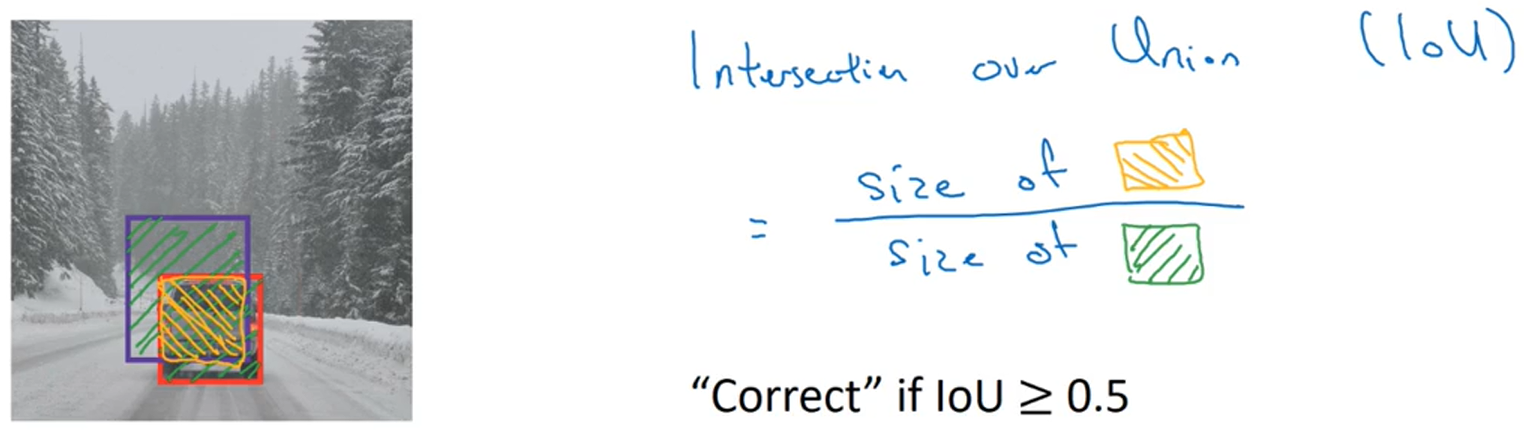 Intersection over Union (IoU)
size of
=
size of
“Correct” if IoU ≥ 0.5